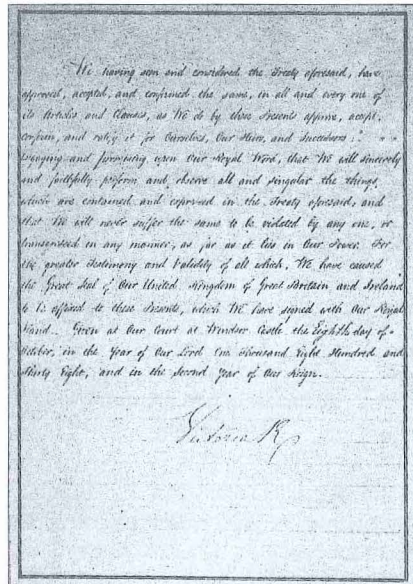 We having seen and considered the Treaty aforesaid, have
approved, accepted, and confirmed the same, in all and every one of
its Articles and Clauses, as We do by these Presents approve, accept,
confirm, and ratify it for Ourselves, Our Heirs, and Successors:
Engaging and promising upon Our Royal Word, that We will sincerely
and faithfully perform and observe all and singular the things
which are contained and expressed in the Treaty aforesaid, and
that We will never suffer the same to be violated by any one, or
transgressed in any manner, as far as it lies in Our Power. For
the greater Testimony and Validity of all which, We have caused
the Great Seal of Our United Kingdom of Great Britain and Ireland
to be affixed to these Presents, which We have signed with Our Royal
Hand. Given at Our Court at Windsor Castle, the Eighth day of
October, in the Year of Our Lord One Thousand Eight Hundred and
Thirty Eight, and in the Second Year of Our Reign.
Victoria R